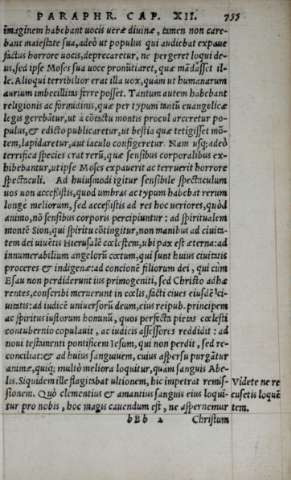 PARAPHR. CAP. XII. 755
imaginem habebant uocis ueræ diuinæ, tamen non care-
bant maiestate sua, adeò ut populus qui audiebat expaue
factus horrore uocis, deprecaretur, ne pergeret loqui de-
us, sed ipse Moses sua uoce pronūtiaret, quæ mādasset il-
le. Alioqui terribilior erat illa uox, quàm ut humanarum
aurium imbecillitas ferre posset. Tantum autem habebant
religionis ac formidinis, quæ per typum motū euangelicæ
legis gerebātur, ut à cōtactu montis procul arceretur po-
pulus, & edicto publicaretur, ut bestia quæ tetigisset mō-
tem, lapidaretur, aut iaculo configeretur. Nam usq; adeò
terrifica species erat rerū, quæ sensibus corporalibus ex-
hibebantur, ut ipse Moses expauerit ac terruerit horrore
spectaculi. Ad huiusmodi igitur sensibile spectaculum
uos non accessistis, quod umbras ac typum habebat rerum
longè meliorum, sed accessistis ad res hoc ueriores, quòd
animo, nō sensibus corporis percipiuntur: ad spiritualem
montē Sion, qui spiritu cōtingitur, non manibus ad ciuita-
tem dei uiuētis Hierusalē cœlestem, ubi pax est æterna: ad
innumerabilium angelorū cœtum, qui sunt huius ciuitatis
proceres & indigenæ: ad concionē filiorum dei, qui cum
Esau non perdiderunt ius primogeniti, sed Christo adhæ
rentes, conscribi meruerunt in cœlis, facti ciues eiusdē ci
uitatis: ad iudicē uniuersorū deum, eius reipub. principem
ac spiritus iustorum hominū, quos perfecta pietas cœlesti
contubernio copulauit, ac iudicis assessores reddidit: ad
noui testamenti pontificem Iesum, qui non perdit, sed re-
conciliat: & ad huius sanguinem, cuius aspersu purgātur
animæ, quiq; multò meliora loquitur, quàm sanguis Abe-
lis. Siquidem ille flagitabat ultionem, hic impetrat remis- Videte ne re
sionem. Quò clementius & amantius sanguis eius loqui- cusetis loquē
tur pro nobis, hoc magis cauendum est, ne aspernemur tem.
bBb 2 Christum